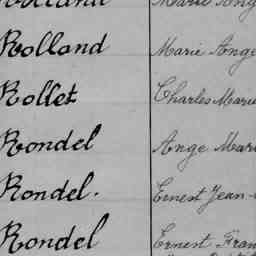 Rolland Marie Ang
Rolland Marie Ange
Rollet Charles Marie
Rondel Ange Mari
Rondel. Ernest Jean-
Rondel Ernest Fran